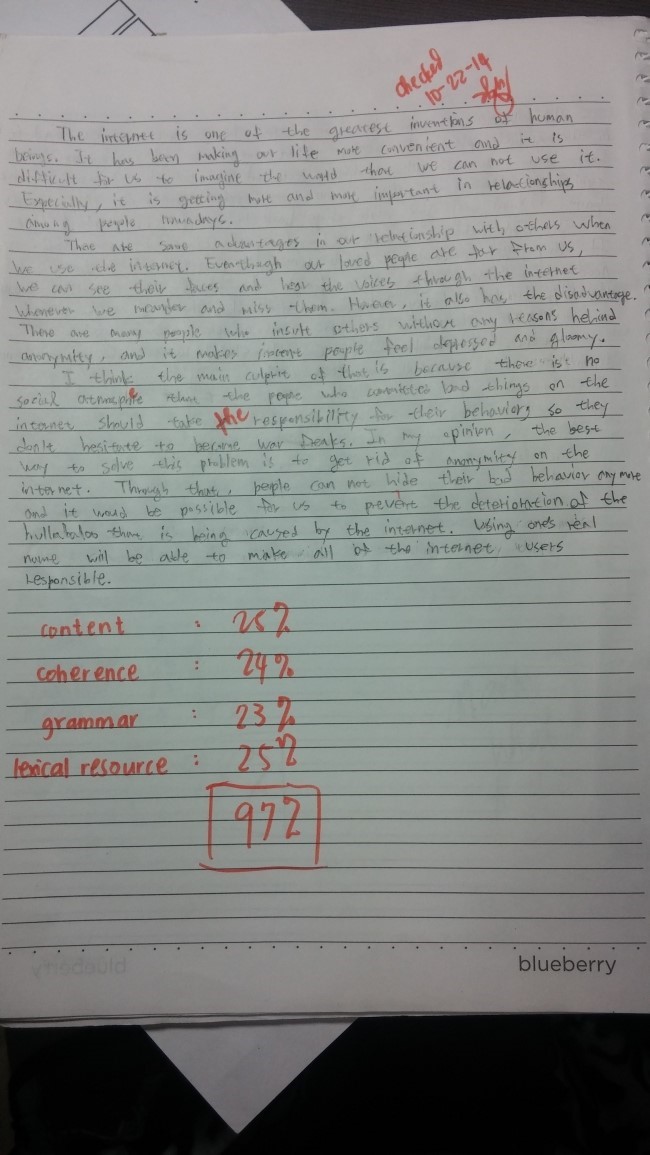 checked
10-22-14
The internet is one of the greatest inventions of human
beings. It has been making our life more convenient and it is
difficult for us to imagine the world that we can not use it.
Especially, it is getting more and more important in relactionships
among people nowadays.
There are some advantages in our relactionship with others when
we use the internet. Eventhogh our loved people are far from us,
we can see their faces and hear the voices through the internet
whenever we remember and miss them. However, it also has the disadvantage.
There are many people who insult others without any reasons behind
anonymity, and it makes innocent people feel depressed and gloomy.
I think the main culprit of that is because there is no
social atmosphere that the people who committed bad things on the
internet should take the responsibility for their behaviors so they
don't hesitate to become war freaks. In my opinion, the best
way to solve this problem is to get rid of anonymity on the
internet. Through that, people can not hide their bad behavior any more
and it would be possible for us to prevent the deterioration of the
hullabaloo that is being caused by the internet. Using one's real
name will be able to make all of the internet users
responsible.
content : 25%
coherence : 24%
grammar : 23%
lexical resource : 25%
97%
blueberry